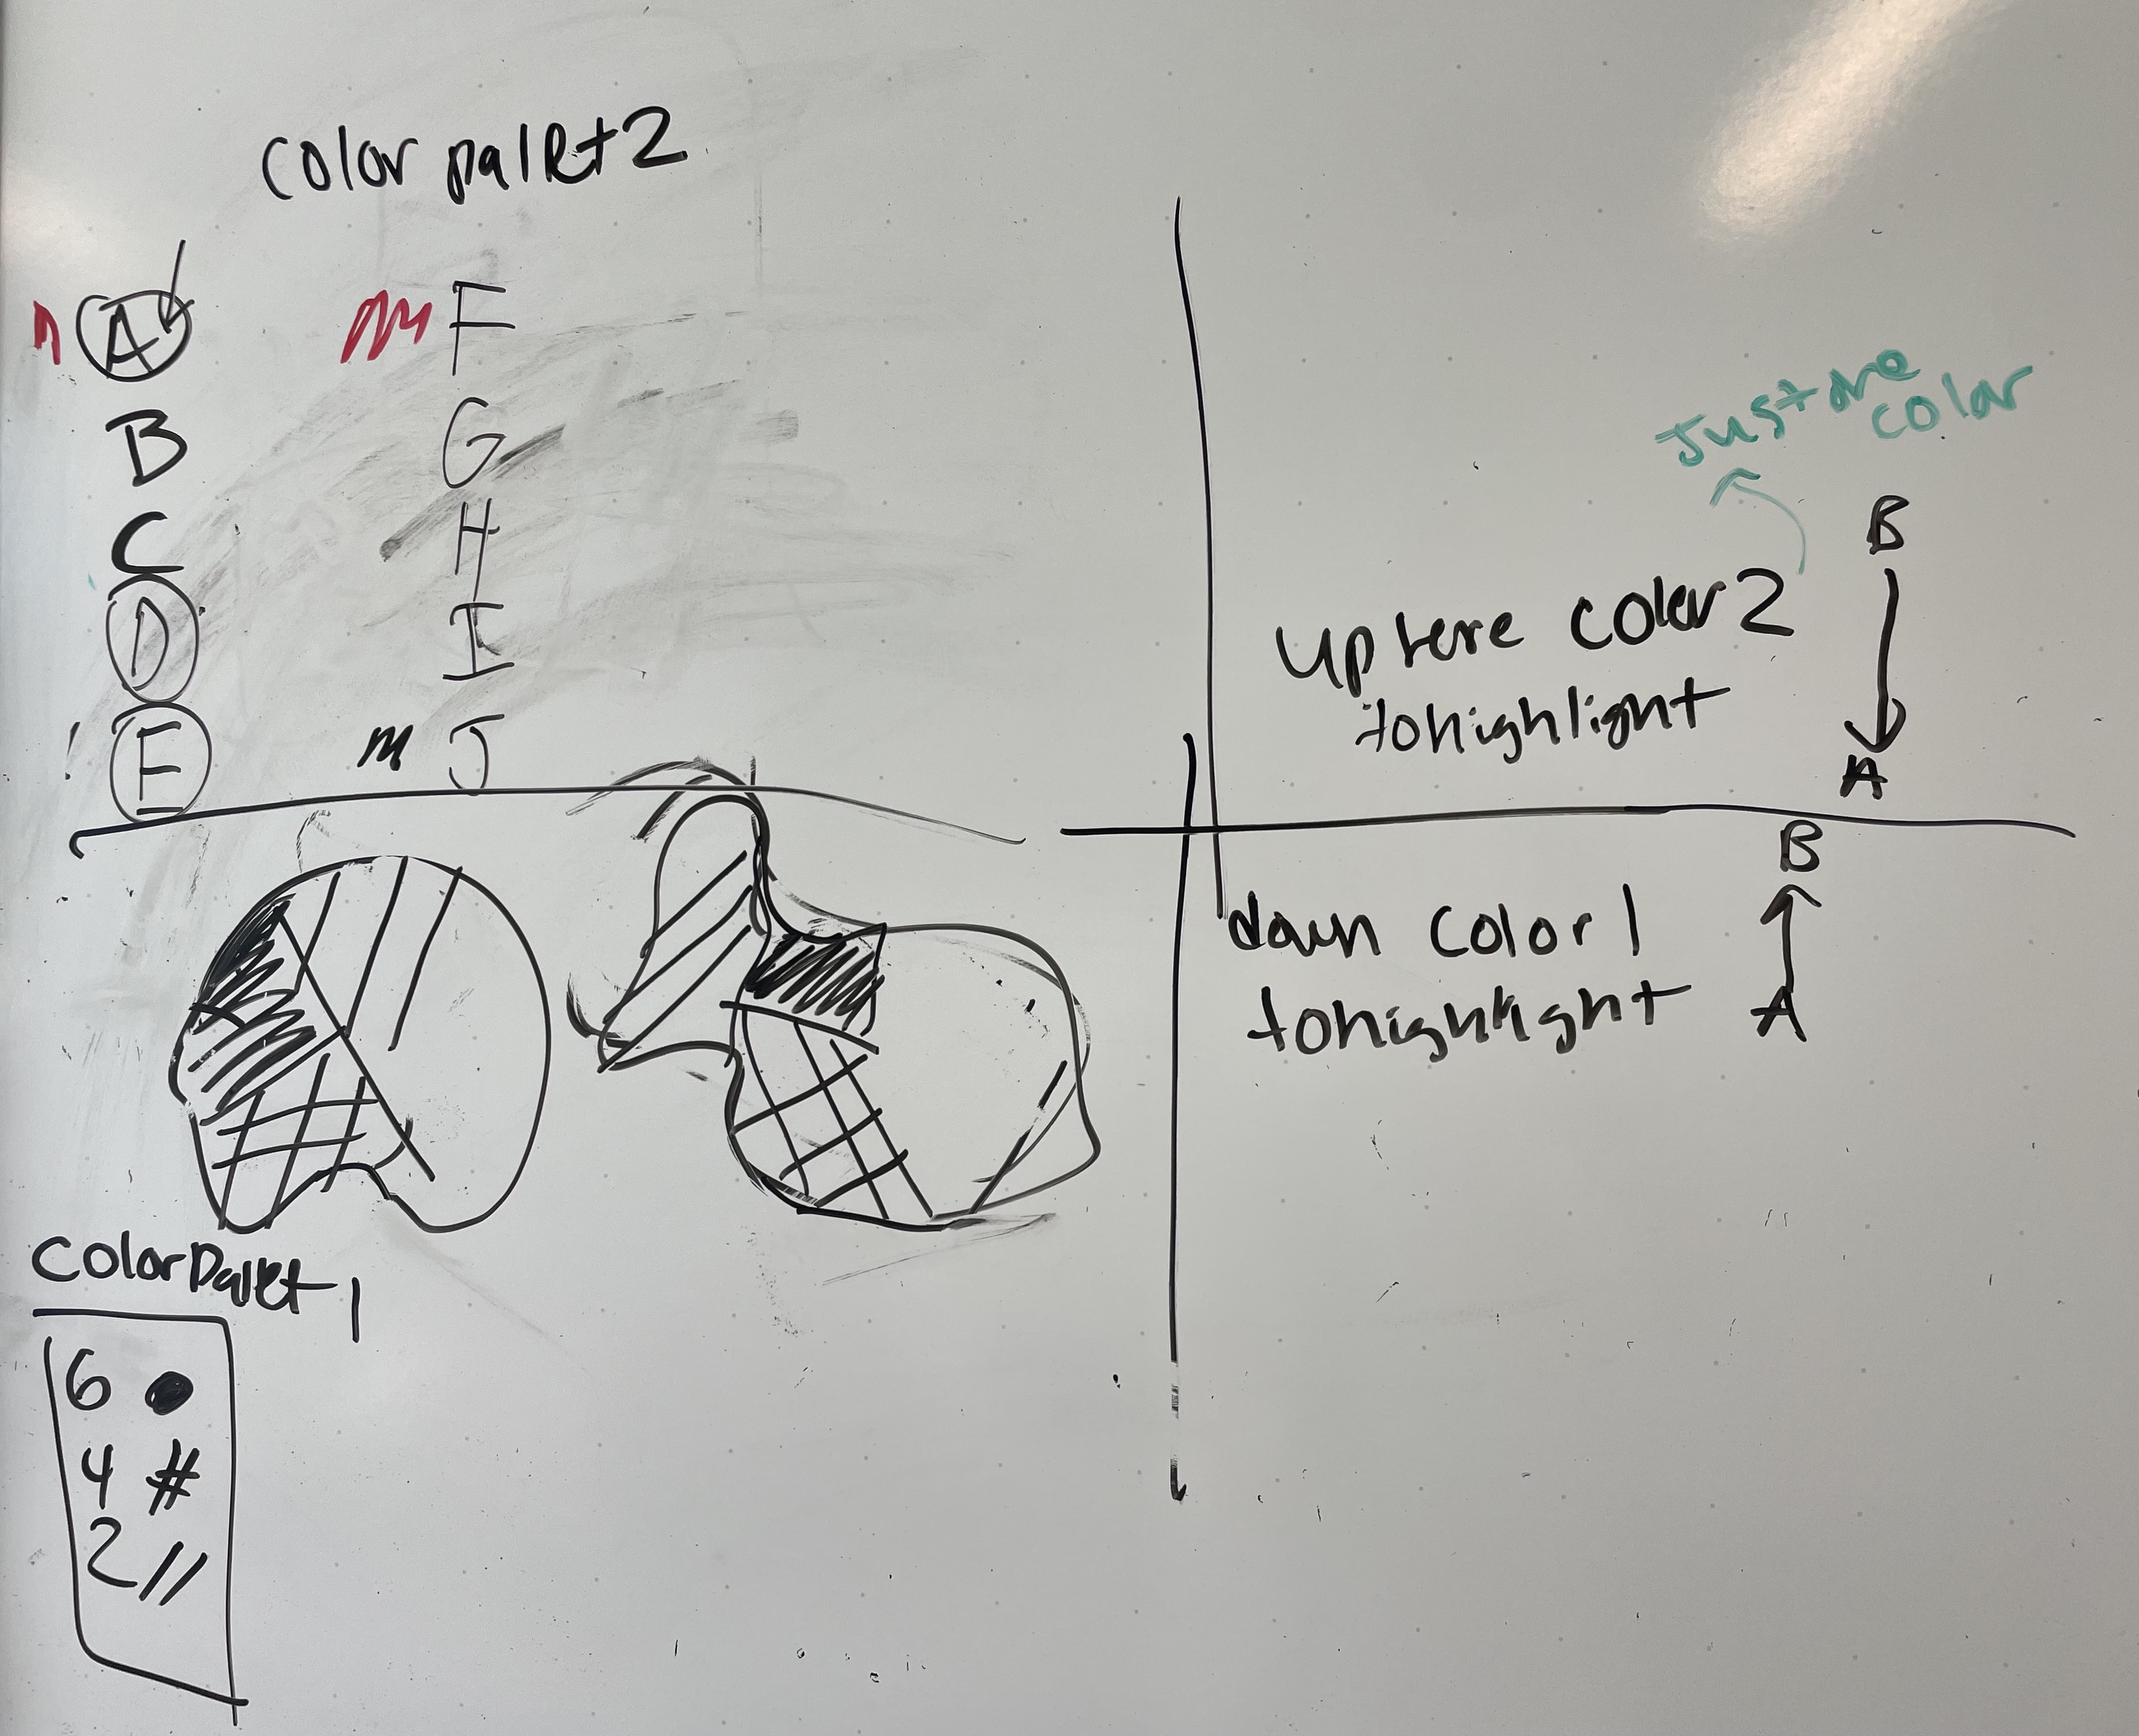 color palet 2
A
B
C
D
E
F
G
H
I
m J
Color Palet 1
6
4 #
2 //
Just one
color
B
up here color 2
to highlight
A
B
down color 1
to highlight
A